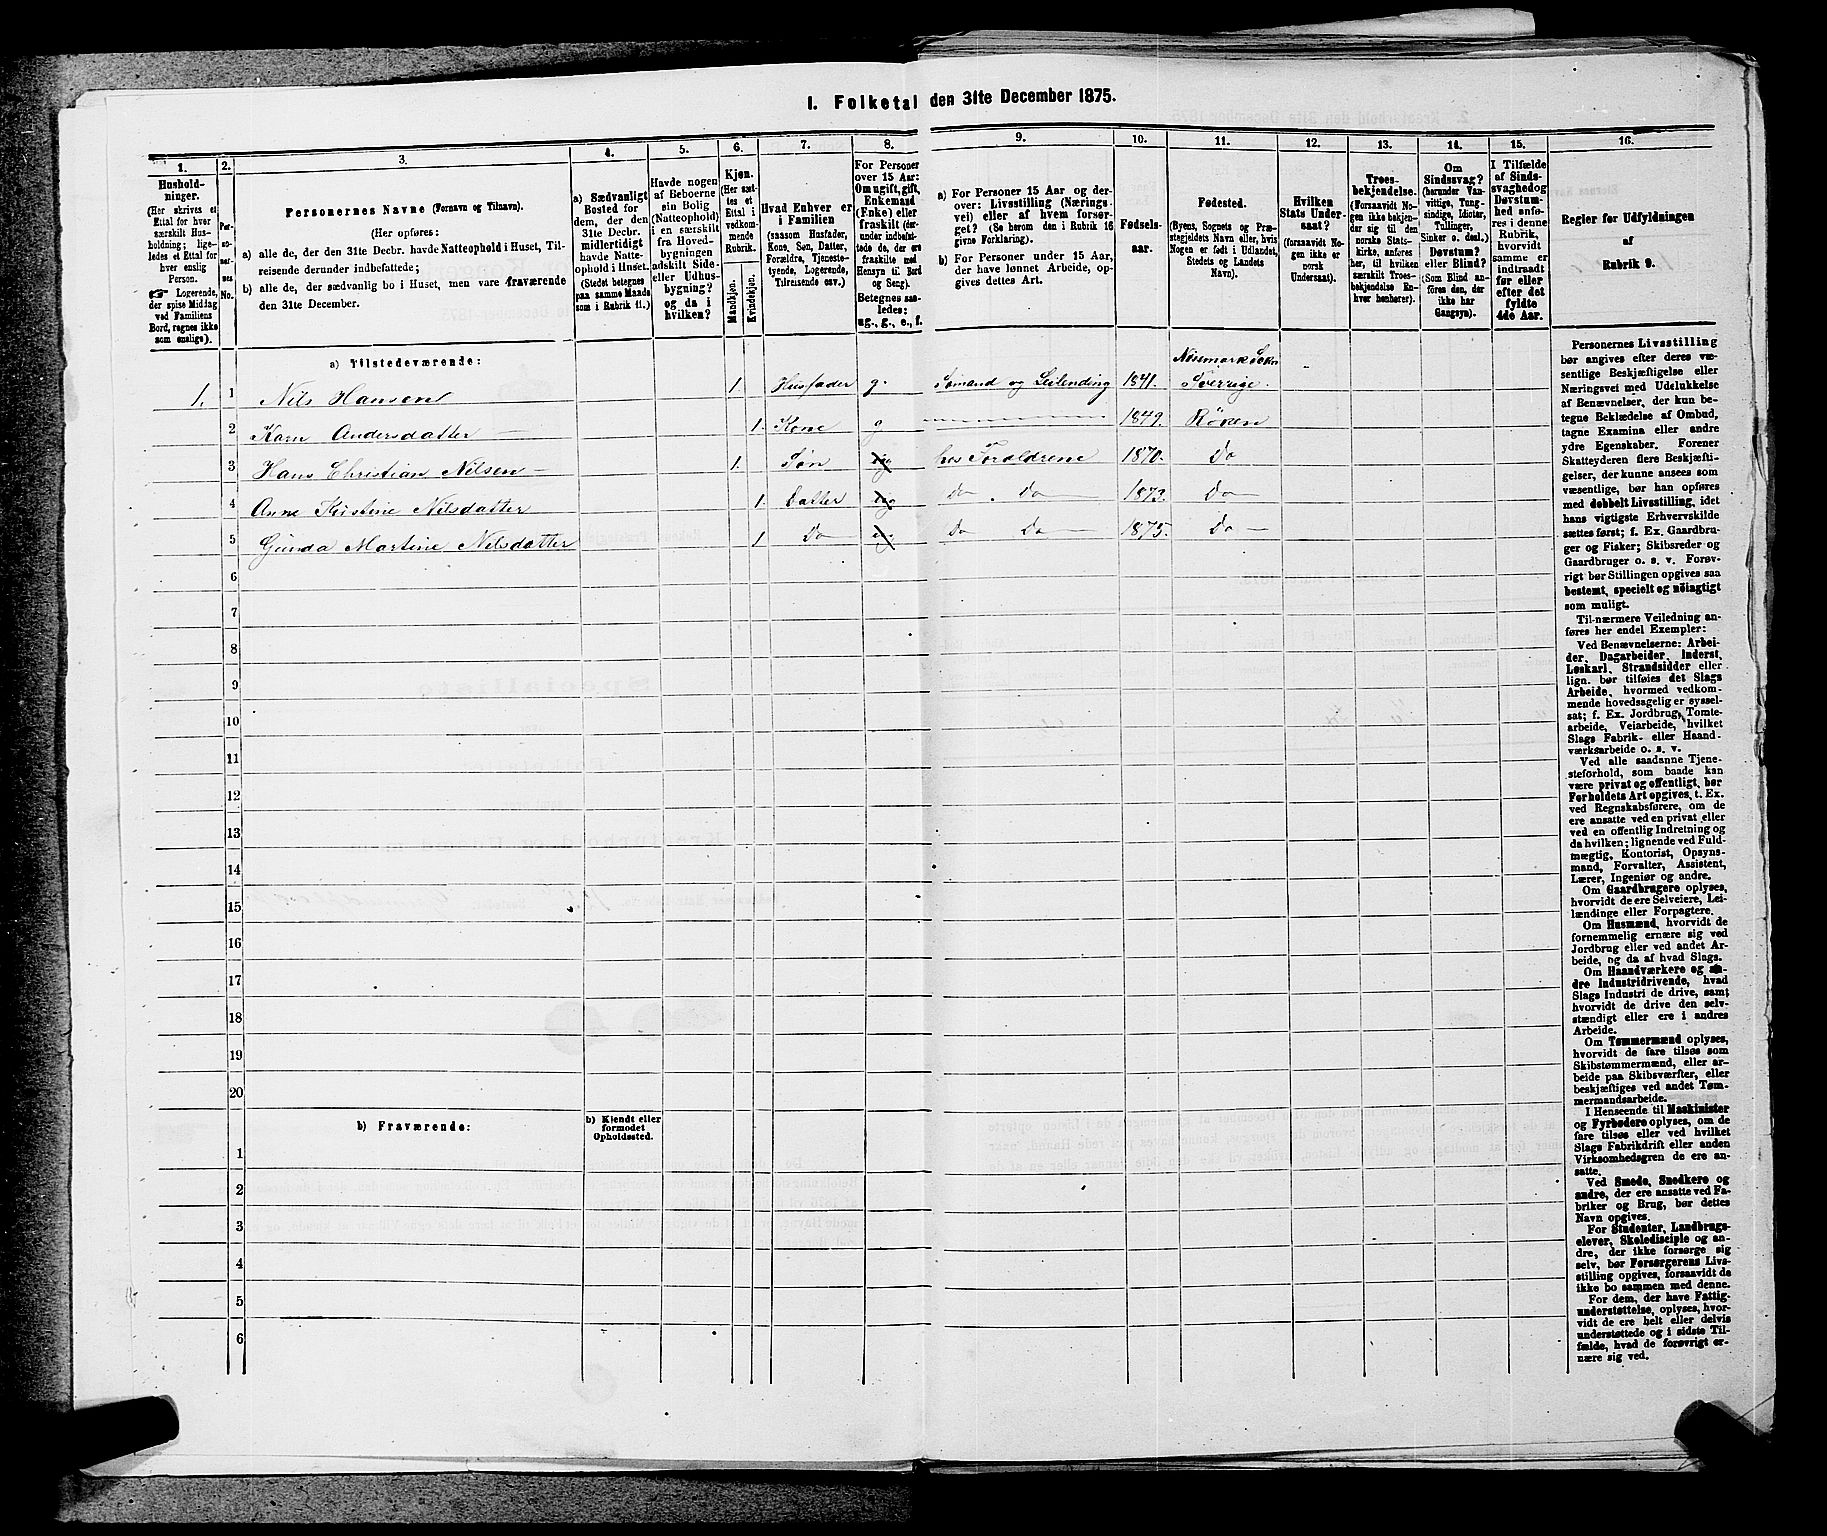 I. Folketal den 31te December 1875.
1.
2.
3.
4.
5.
6.
7.
8.
9.
10.
11.
12.
13.
14.
15.
16.
Husholdninger.
(Her skrives et
Ettal for hver
særskilt Husholdning;
ligeledes et Ettal
for hver
enslig
Person.
☞ Logerende,
der spise Middag
ved Familiens
Bord, regnes ikke
som enslige).
Personernes No.
Personernes Navne (Fornavn og Tilnavn).
(Her opføres:
a) alle de, der den 31te Decbr. havde Natteophold i Huset, Tilreisende derunder indbefattede;
b) alle de, der sædvanlig bo i Huset, men vare fraværende
den 31te December.
a) Sædvanligt
Bosted for
dem, der den
31te Decbr.
midlertidigt
havde Natteophold
i Huset.
(Stedet betegnes
paa samme Maade
som i Rubrik 11.)
Havde nogen
af Beboerne
sin Bolig
(Natteophold)
i en særskilt
fra Hovedbygningen
adskilt Side-
eller Udhusbygning?
og da i
hvilken?
Kjøn.
(Her sættes
et
Ettal i
vedkommende
Rubrik.
Mandkjøn.
Kvindekjøn.
Hvad Enhver er
i Familien
(saasom Husfader,
Kone, Søn, Datter,
Forældre, Tjenestetyende,
Logerende,
Tilreisende osv.)
For Personer
over 15 Aar:
Om ugift, gift,
Enkemand
(Enke) eller
fraskilt (derunder
indbefattede
de, der ere
fraskilte med
Hensyn til Bord
og Seng).
Betegnes saaledes:
ug., g., e., f.
a) For Personer 15 Aar og derover:
Livsstilling (Næringsvei)
eller af hvem forsørget?
(Se herom den i Rubrik 16
givne Forklaring).
b) For Personer under 15 Aar,
der have lønnet Arbeide, opgives
dettes Art.
Fødselsaar.
Fødested.
(Byens, Sognets og Præstegjeldets
Navn eller, hvis
Nogen er født i Udlandet,
Stedets og Landets
Navn).
Hvilken
Stats Undersaat?
(forsaavidt Nogen
ikke er
norsk
Undersaat).
Troesbekjendelse.
(Forsaavidt Nogen
ikke bekjender
sig til den
norske Statskirke,
anføres
her, til hvilken
særskilt Troesbekjendelse
Enhver
henhører).
Om
Sindssvag?
(herunder Vanvittige,
Tungsindige,
Idioter,
Tullinger,
Sinker o. desl.)
Døvstum?
eller Blind?
(Som Blind anføres
den, der
ikke har
Gangsyn).
I Tilfælde
af Sindssvaghed
og
Døvstumhed
anføres
i denne
Rubrik,
hvorvidt
samme er
indtraadt
før eller
efter det
fyldte
4de Aar.
Regler for Udfyldningen
af
Rubrik 9.
a) Tilstedeværende:
1. 1 Nils Hansen 1. Husfader g. Sømand og Leilending 1841. Sverrige.
2 Karn Andersdatter 1. Kone g 1849. Røken
3 Hans Christian Nilsen 1. Søn ug hos Foraldrene 1870. Do
4 Anne Kirstine Nilsdatter 1. Datter ug Do. Do 1873. Do
5 Gunda Martine Nilsdatter 1 Do ug Do Do 1875. Do
6
7
8
9
10
11
12
13
14
15
16
17
18
19
20
b) Fraværende:
b) Kjendt eller
formodet
Opholdssted.
1
2
3
4
5
6
Personernes Livsstilling
bør angives efter deres væsentlige
Beskjæftigelse eller
Næringsvei med Udelukkelse
af Benævnelser, der kun betegne
Beklædelse af Ombud,
tagne Examina eller andre
ydre Egenskaber. Forener
Skatteyderen flere Beskjæftigelser,
der kunne ansees som
væsentlige, bør han opføres
med dobbelt Livsstilling, idet
hans vigtigste Erhvervskilde
sættes først; f. Ex. Gaardbruger
og Fisker; Skibsreder og
Gaardbruger o. s. v. Forøvrigt
bør Stillingen opgives saa
bestemt, specielt og nöiagtigt
som muligt.
Til nærmere Veiledning anføres
her endel Exempler:
Ved Benævnelserne: Arbeider,
Dagarbeider, Inderst,
Løskarl, Strandsidder eller
lign. bør tilføies det Slags
Arbeide, hvormed vedkommende
hovedsagelig er sysselsat;
f. Ex. Jordbrug, Tomtearbeide,
Veiarbeide, hvilket
Slags Fabrik- eller Haandværksarbeide
o. s. v.
Ved alle saadanne Tjenesteforhold,
som baade kan
være privat og offentligt, bør
Forholdets Art opgives, t. Ex.
ved Regnskabsførere, om de
ere ansatte ved en privat eller
ved en offentlig Indretning og
da hvilken; lignende ved Fuldmægtig,
Kontorist, Opsynsmand,
Forvalter, Assistent,
Lærer, Ingeniør og andre.
Om Gaardbrugere oplyses,
hvorvidt de ere Selveiere, Leilændinge
eller Forpagtere.
Om Husmænd, hvorvidt de
fornemmelig ernære sig ved
Jordbrug eller ved andet Arbeide,
og da af hvad Slags.
Om Haandværkere og andre
Industridrivende, hvad
Slags Industri de drive, samt
hvorvidt de drive den selvstændigt
eller ere i andres
Arbeide.
Om Tømmermænd oplyses,
hvorvidt de fare tilsøs som
Skibstømmermænd, eller arbeide
paa Skibsværfter, eller
beskjæftiges ved andet Tømmermandsarbeide.
I Henseende til Maskinister
og Fyrbødere oplyses, om de
fare tilsøs eller ved hvilket
Slags Fabrikdrift eller anden
Virksomhedsgren de ere ansatte.
Ved Smede, Snedkere og
andre, der ere ansatte ved Fabriker
og Brug, bør dettes
Navn opgives.
For Studenter, Landbrugselever,
Skoledisciple og andre,
der ikke forsørge sig
selv, bør Forsørgerens Livsstilling
opgives, forsaavidt de
ikke bo sammen med denne.
For dem, der have Fattigunderstøttelse,
oplyses, hvorvidt
de ere helt eller delvis
understøttede og i sidste Tilfælde,
hvad de forøvrigt ernære
sig ved.